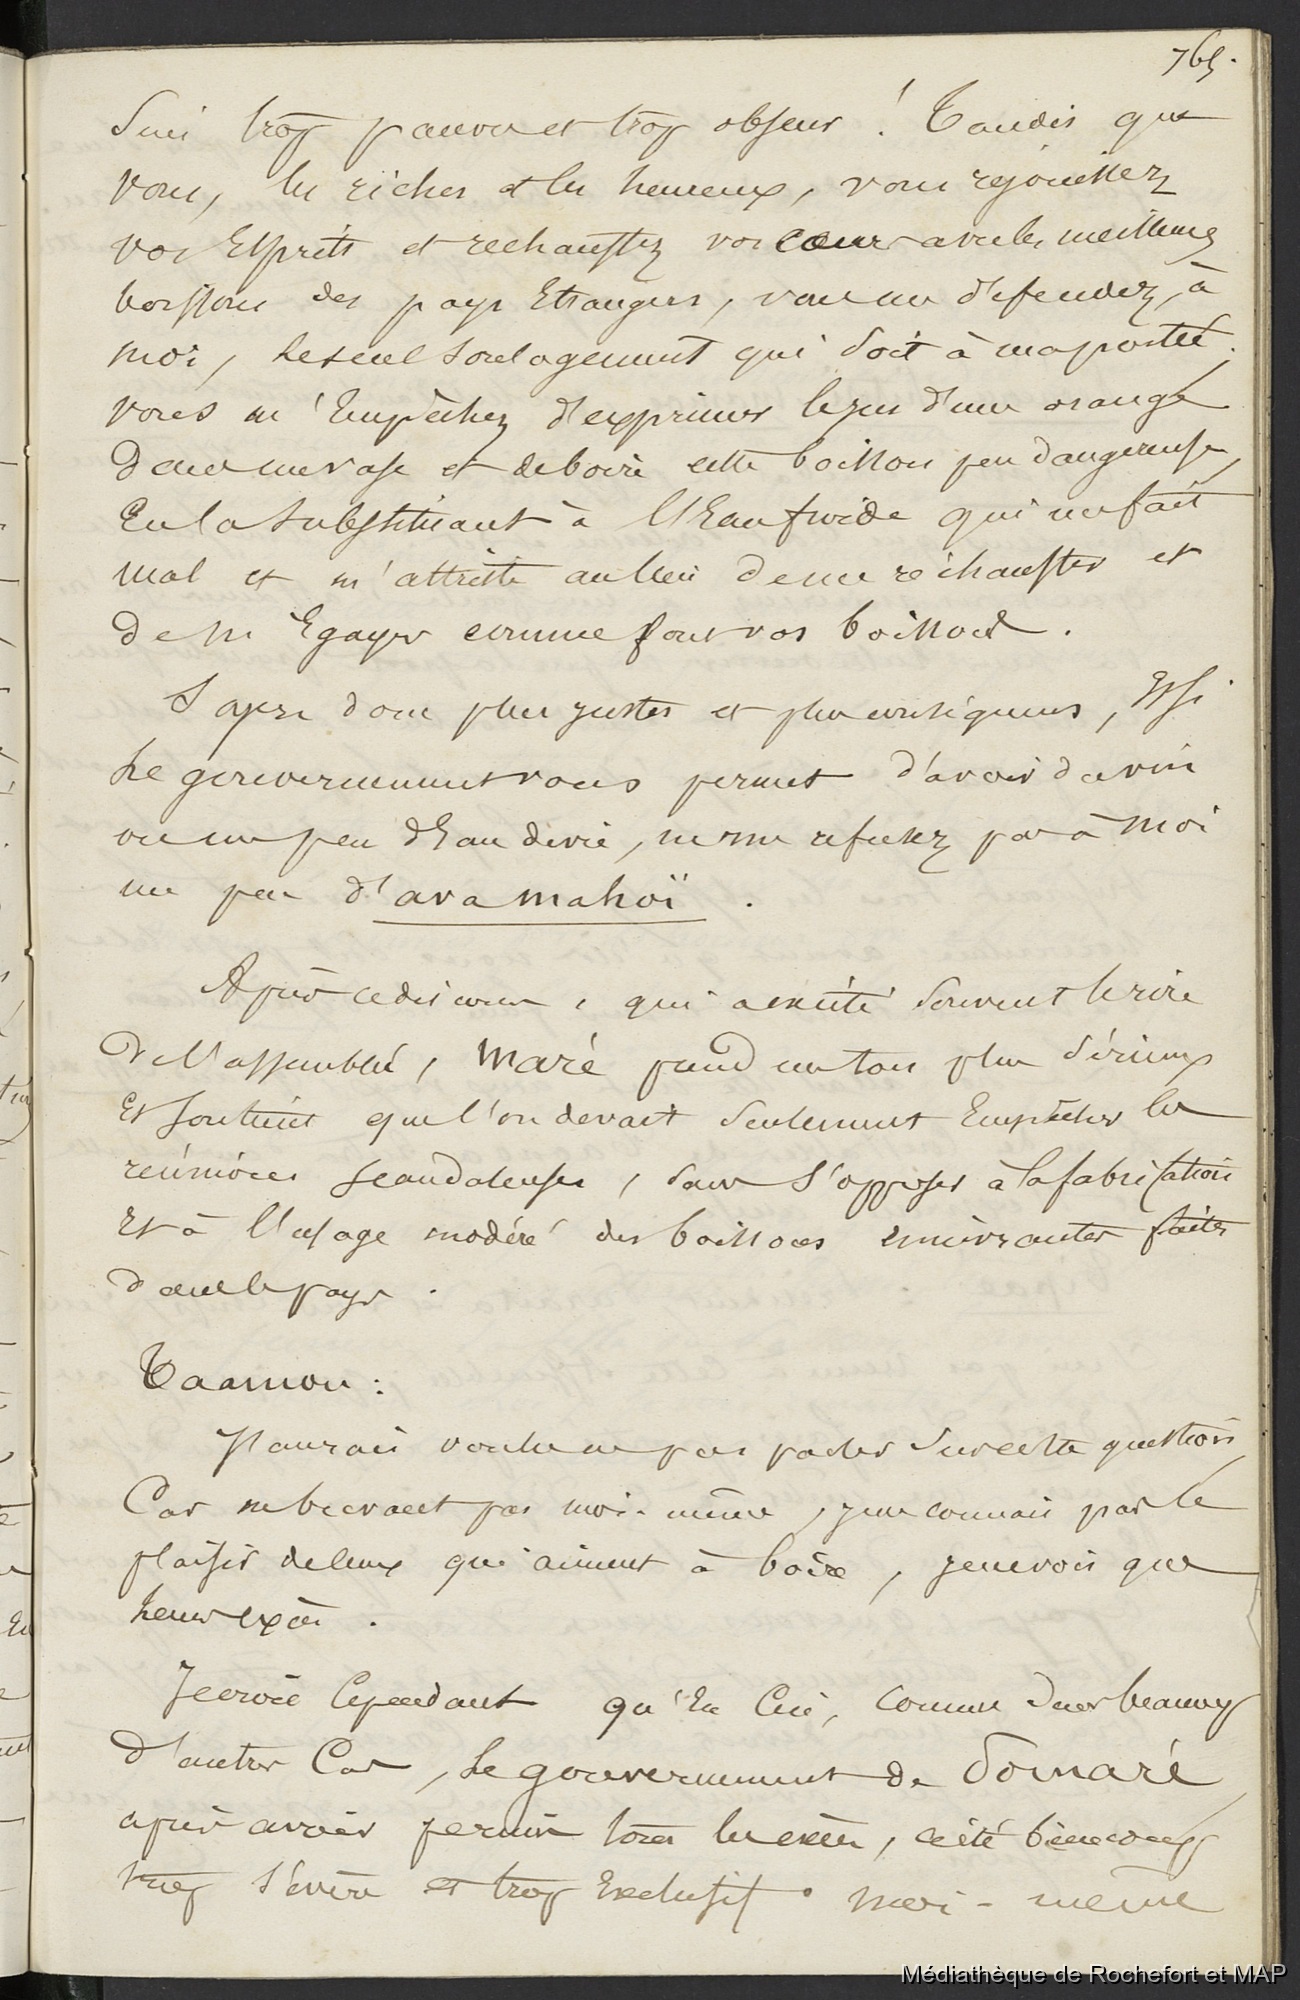 765.
suis trop pauvre et trop obscur ! Tandis que
vous, les riches et les heureux, vous rejouissez
vos Esprits et rechauffez vos cœurs avec les meilleures
boissons des pays Etrangers, vous me défendez, à
moi, le seul soulagement qui soit à ma portée.
vous m'Empêchez d'exprimer le jus d'une orange
dans un vase et de boire cette boisson peu dangereuse,
En la substituant à l'Eau froide qui me fait
mal et m'attriste au lieu de me réchauffer et
de m'Egayer comme font vos boissons.
Soyez donc plus justes et plus conséquens, Et si
le gouvernement vous permet d'avoir du vin
ou un peu d'Eau de vie, ne me refusez pas à moi
un peu d'ava mahoï.
Après ce discours, qui a excité souvent le rire
de l'assemblée, Maré prend un ton plus sérieux
Et soutient que l'on devait seulement Empêcher les
réunions scandaleuses, sans s'opposer à la fabrication
Et à l'usage modéré des boissons enivrantes faites
dans le pays.
Taamou :
J'aurais voulu ne pas parler sur cette question,
Car ne buvant pas moi-même, je ne connais pas le
plaisir de ceux qui aiment à boire, je ne vois que
leurs excès.
Je crois Cependant qu'En Ceci, Comme dans beaucoup
d'autres Cas, le gouvernement de Pomaré
après avoir permis tous les excès, a été beaucoup
trop sévère et trop Exclusif. Moi-même
Médiathèque de Rochefort et MAP